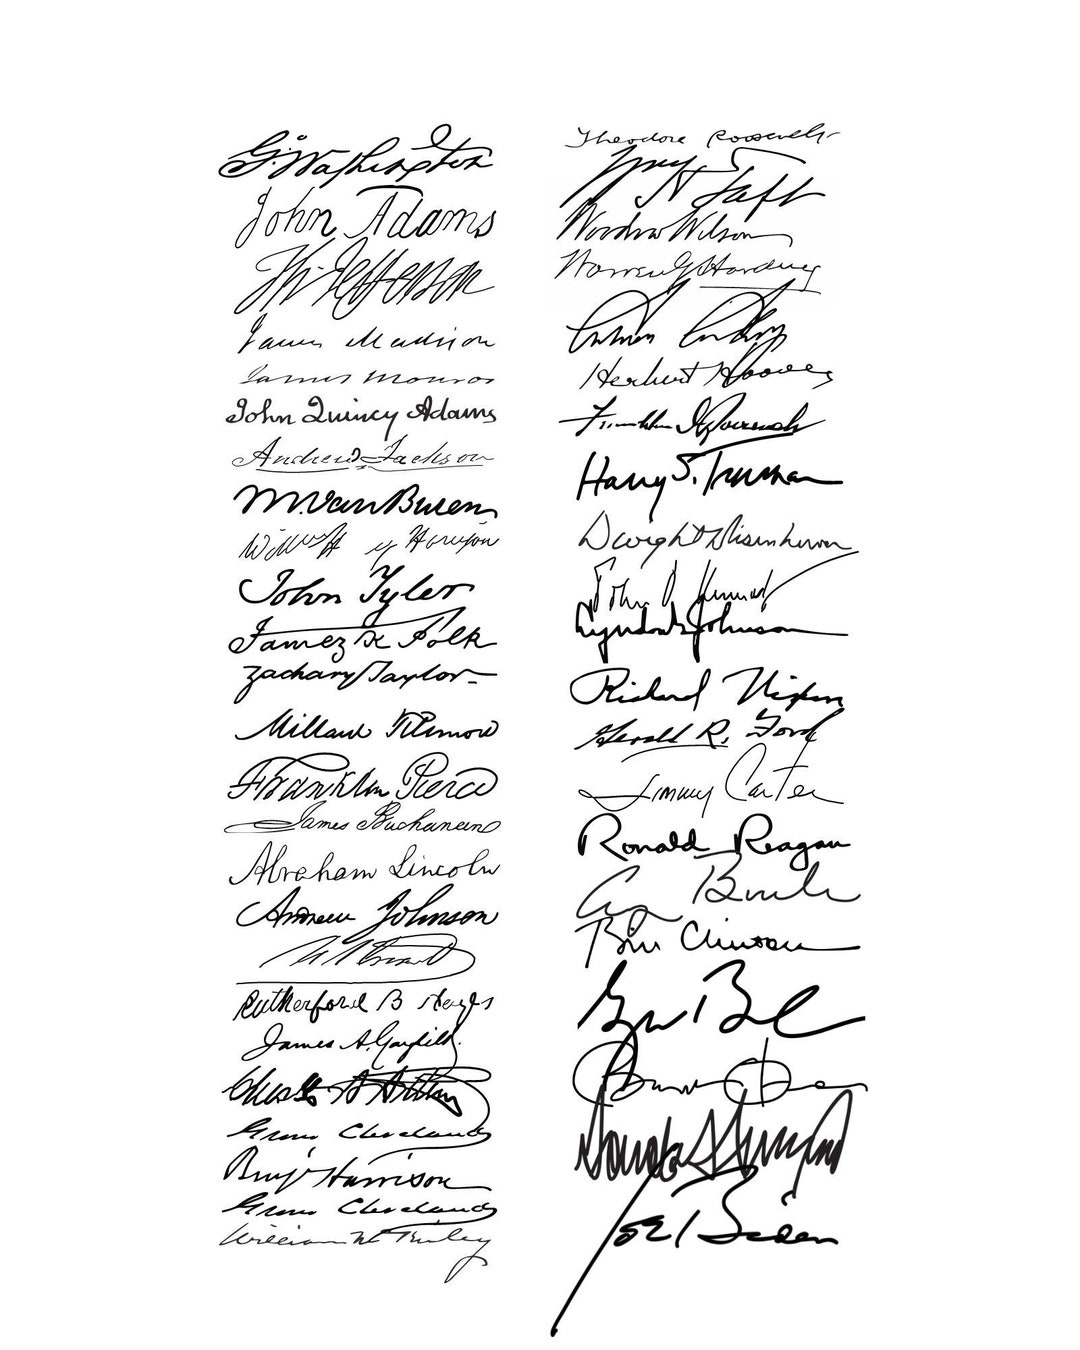 G. Washington
John Adams
Th. Jefferson
James Madison
James Monroe
John Quincy Adams
Andrew Jackson
M. Van Buren
W. H. Harrison
John Tyler
James K Polk
Zachary Taylor
Millard Fillmore
Franklin Pierce
James Buchanan
Abraham Lincoln
Andrew Johnson
U. S. Grant
Rutherford B Hayes
James A. Garfield.
Chester A Arthur
Grover Cleveland
Benj Harrison
Grover Cleveland
William McKinley
Theodore Roosevelt
Wm H Taft
Woodrow Wilson
Warren G Harding
Calvin Coolidge
Herbert Hoover
Franklin D Roosevelt
Harry S. Truman
Dwight D Eisenhower
John Kennedy
Lyndon B Johnson
Richard Nixon
Gerald R. Ford
Jimmy Carter
Ronald Reagan
G Bush
Bill Clinton
G W Bush
Barack Obama
Donald Trump
Joe Biden